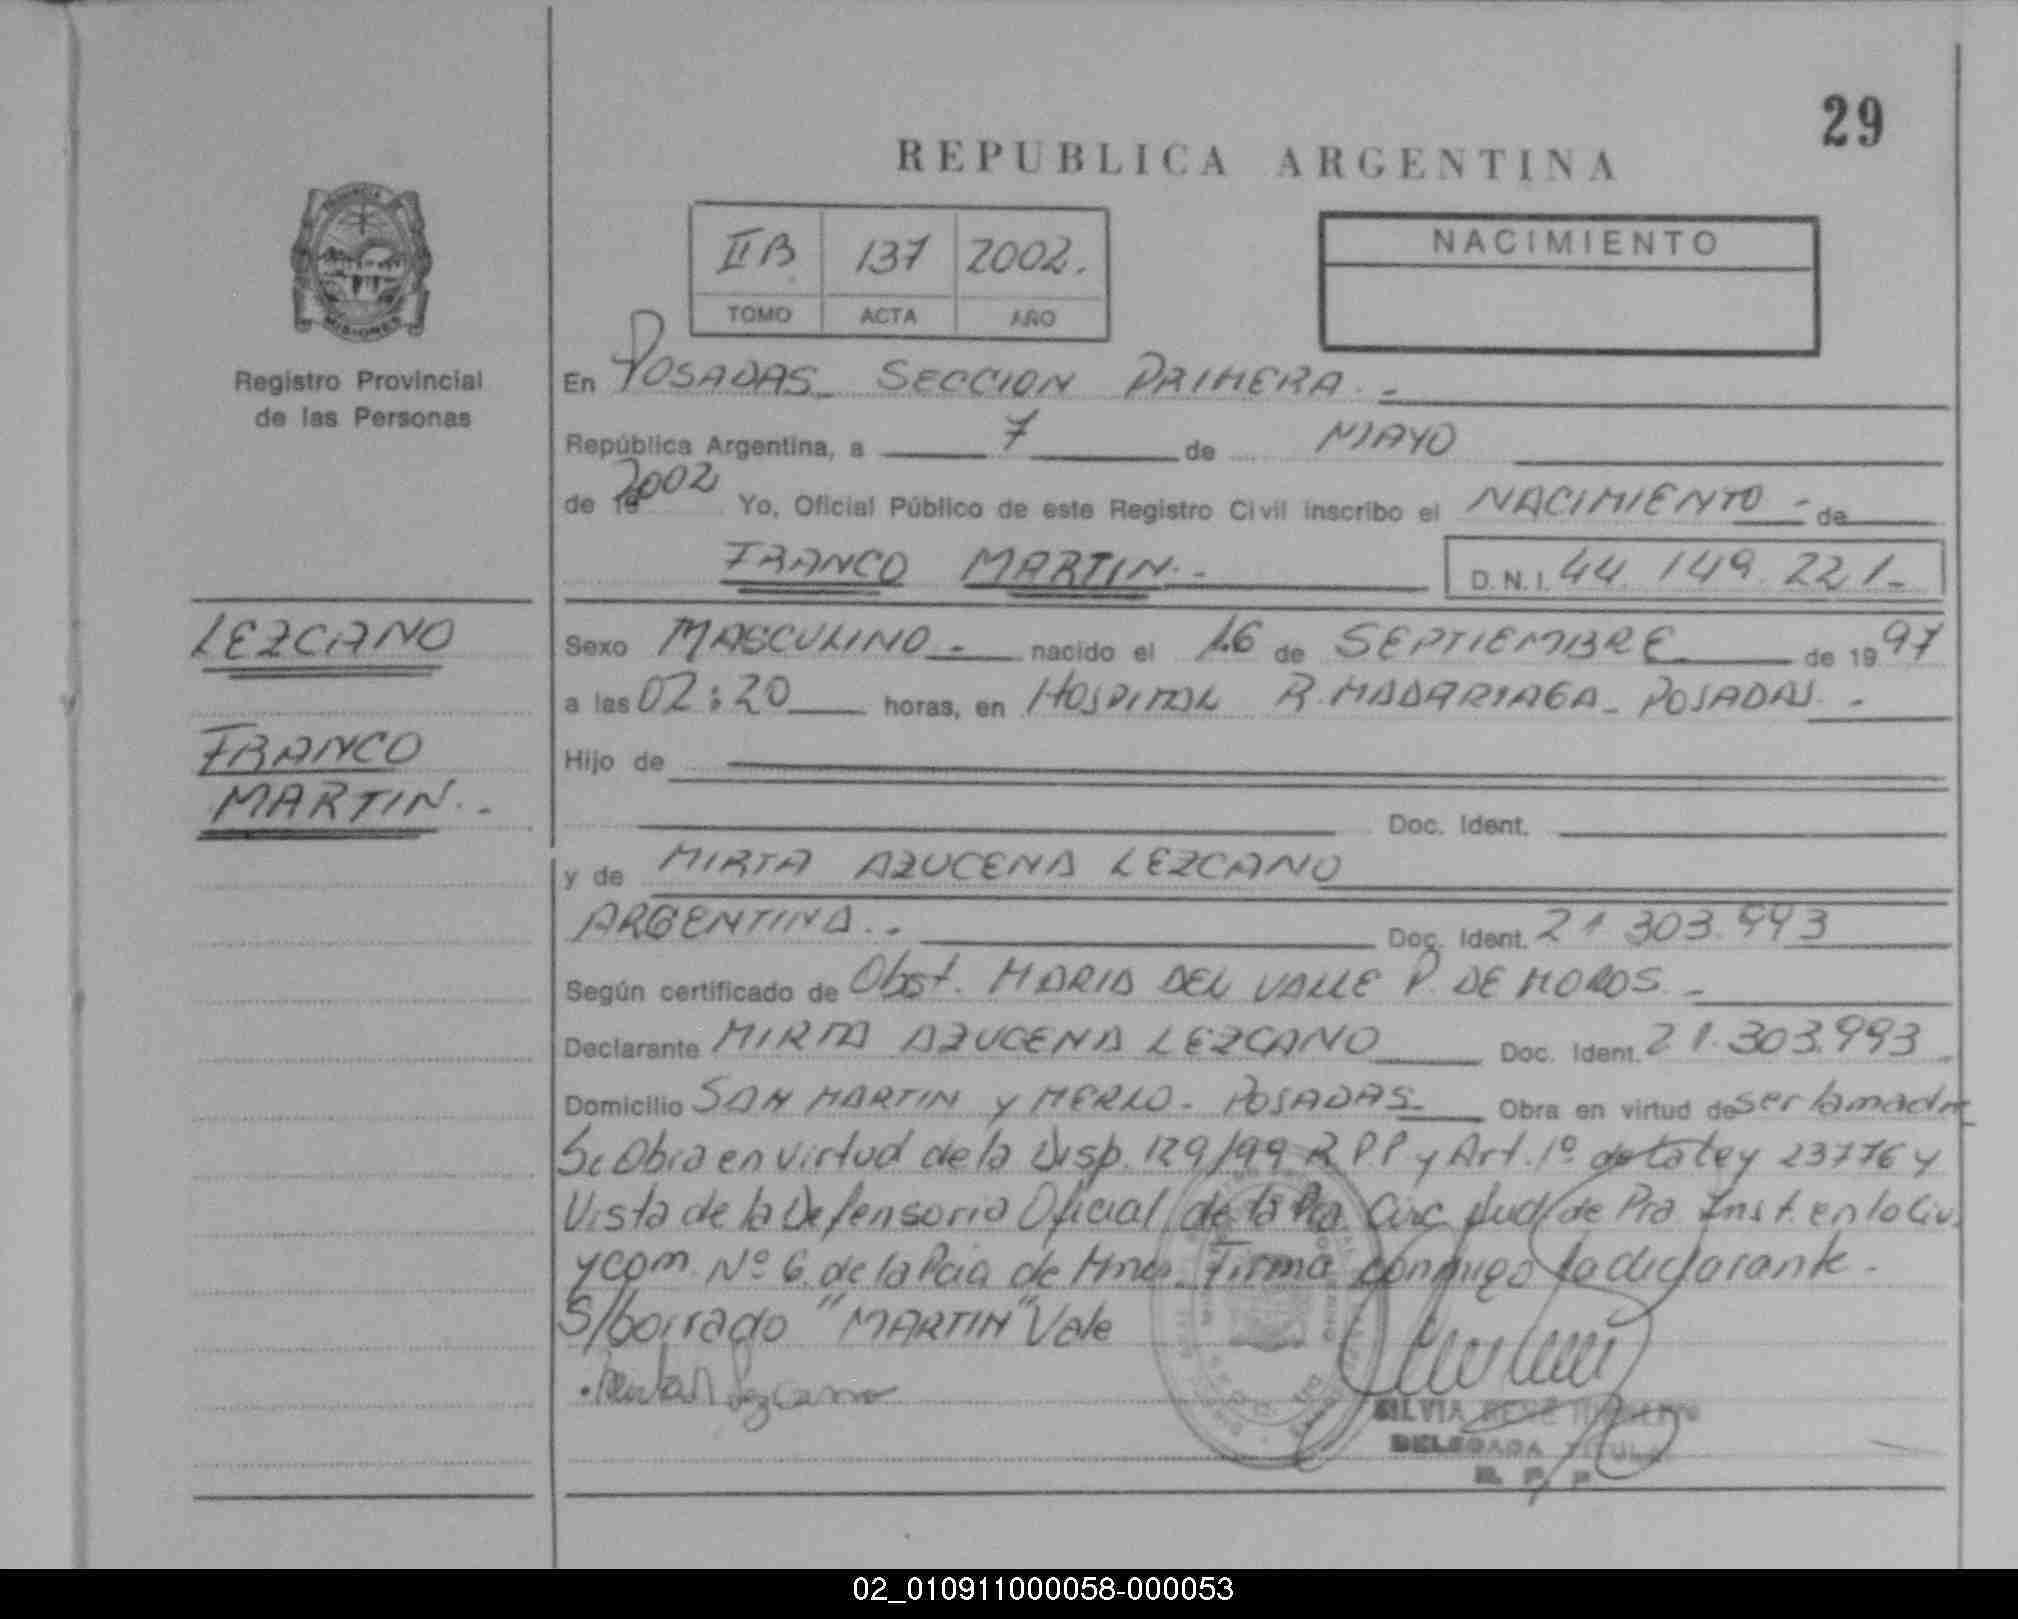 29
REPUBLICA ARGENTINA
PROVINCIA
MISIONES
Registro Provincial
de las Personas
IIB 137 2002.
TOMO ACTA AÑO
NACIMIENTO
En POSADAS_ SECCION PRIMERA.-
República Argentina, a 7 de MAYO
de 2002 Yo, Oficial Público de este Registro Civil inscribo el NACIMIENTO - de
FRANCO MARTIN.- D.N.I. 44.149.221_
LEZCANO
FRANCO
MARTIN.-
Sexo MASCULINO_- nacido el 16 de SEPTIEMBRE de 1997
a las 02:20 horas, en HOSPITAL R. MADARIAGA_ POSADAS.-
Hijo de
Doc. Ident.
y de MIRTA AZUCENA LEZCANO
ARGENTINA.- Doc. Ident. 21 303.993
Según certificado de Obst. MARIA DEL VALLE P. DE MOROS.-
Declarante MIRTA AZUCENA LEZCANO Doc. Ident. 21.303.993
Domicilio SAN MARTIN y MERLO- POSADAS_ Obra en virtud de ser la madre
Se Obra en virtud de la Disp. 129/99 R.P.P y Art. 1º de la Ley 23776 y
Vista de la Defensoria Oficial de la Pra. Circ. Jud. de Pra Inst. en lo Civ.
y Com. Nº 6. de la Pcia de Mnes. Firma conmigo la declarante.
S/borrado "MARTIN" Vale
Lezcano
SILVIA
DELEGADA TITULAR
R. P. P.
02_010911000058-000053